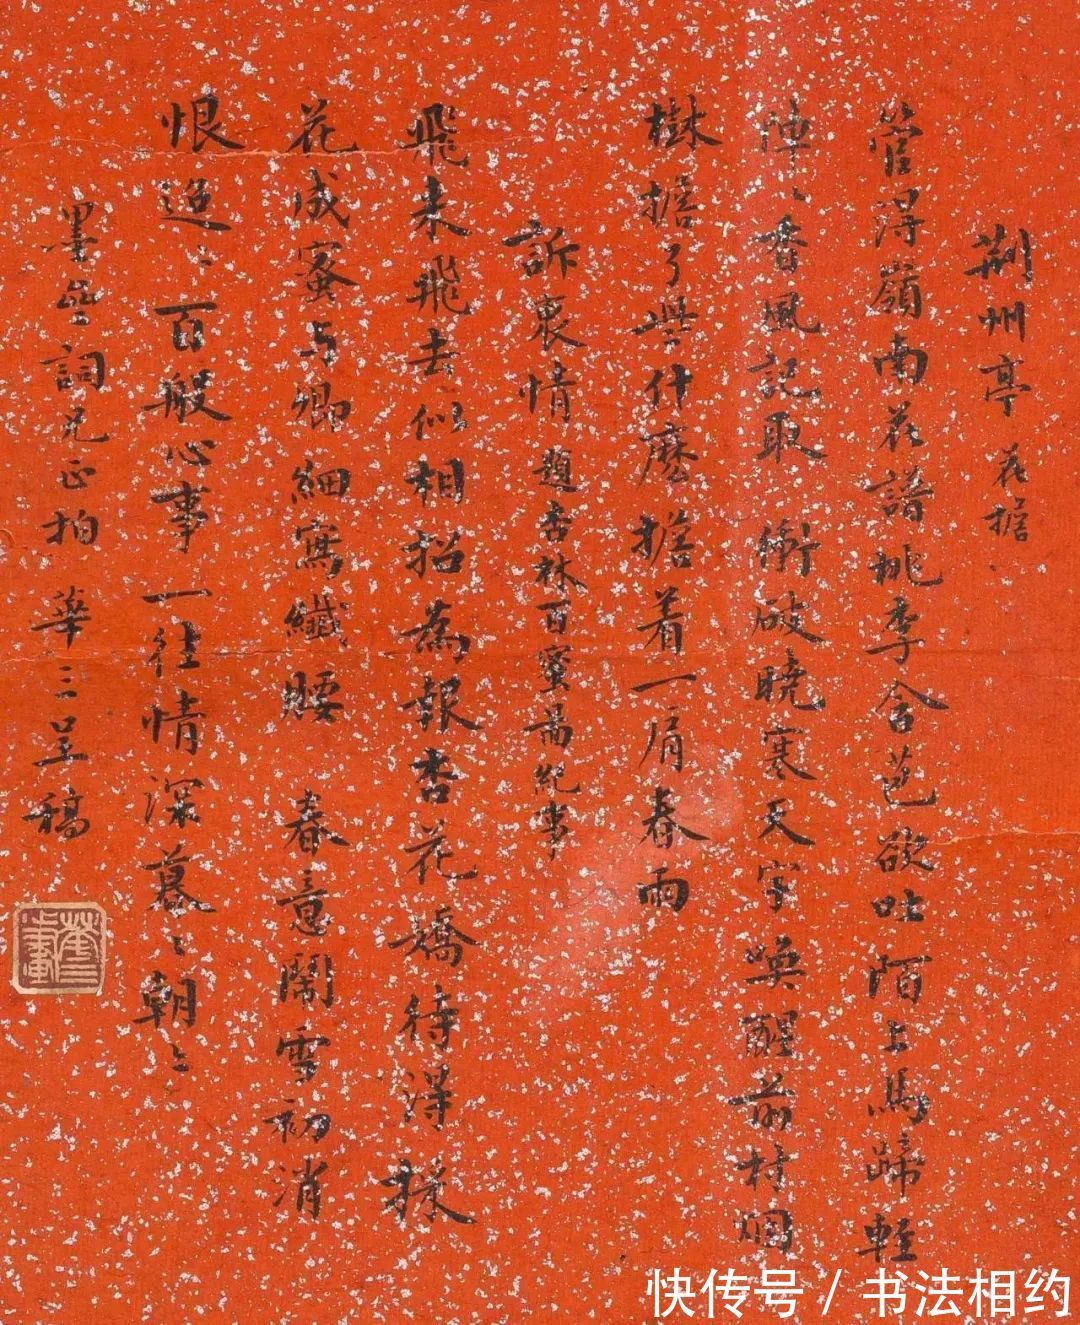 荆州亭 花擔
管得嶺南花譜桃李含苞欲吐陌上馬蹄輕
陣〻香風記取 衝破曉寒天宇喚醒前村烟
樹擔了些什麽擔着一肩春雨
訴衷情 題杏林百蜜啚紀事
飛來飛去似相招為報杏花嬌待得採
花成蜜与卿細寫纖腰 春意鬧雪初消
恨迢〻百般心事一往情深暮〻朝〻
墨詞兄正拍 華三呈稿
快传号 / 书法相约